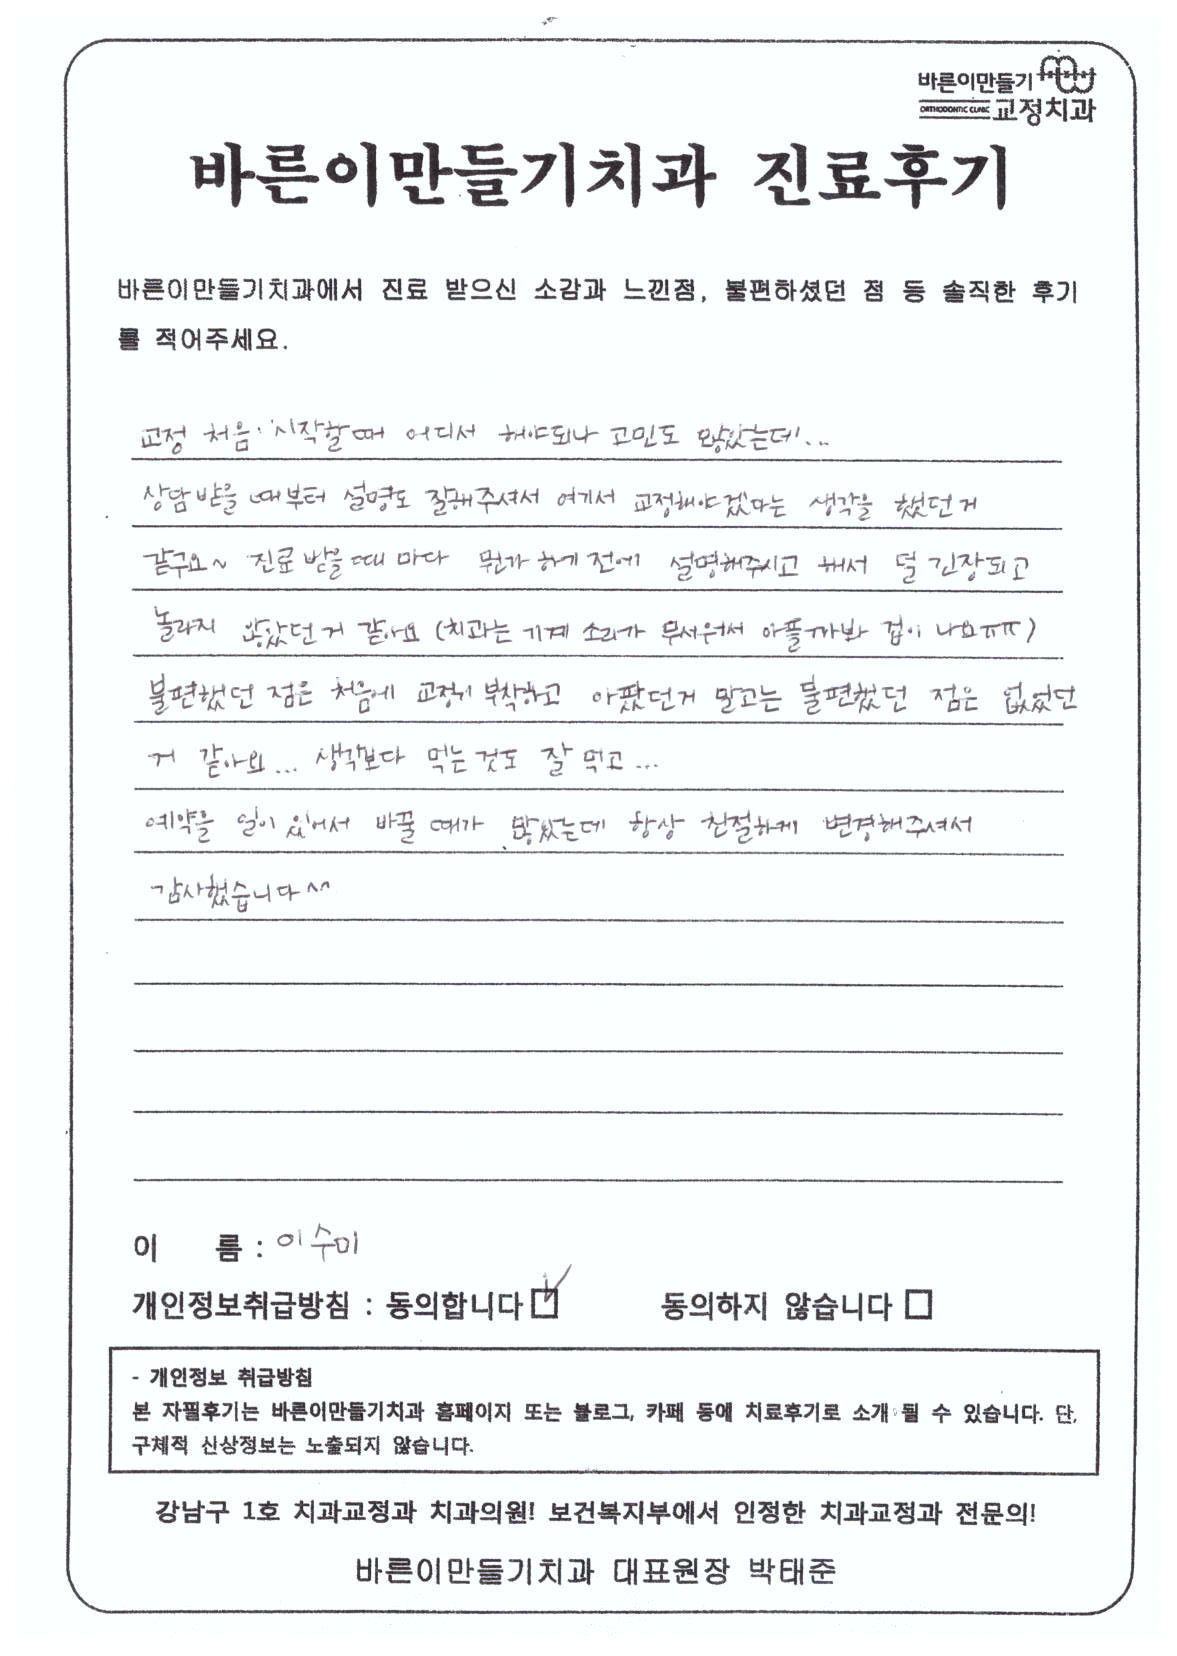 바른이만들기
ORTHODONTIC CLINIC 교정치과
바른이만들기치과 진료후기
바른이만들기치과에서 진료 받으신 소감과 느낀점, 불편하셨던 점 등 솔직한 후기
를 적어주세요.
교정 처음 시작할때 어디서 해야되나 고민도 많았는데...
상담받을 때부터 설명도 잘해주셔서 여기서 교정해야겠다는 생각을 했던거
같구요~ 진료 받을때 마다 뭔가 하기 전에 설명해주시고 해서 덜 긴장되고
놀라지 않았던거 같아요 (치과는 기계 소리가 무서워서 아플까봐 겁이 나요ㅠㅠ)
불편했던 점은 처음에 교정기 부착하고 아팠던거 말고는 불편했던 점은 없었던
거 같아요... 생각보다 먹는것도 잘 먹고...
예약을 일이 있어서 바꿀 때가 많았는데 항상 친절하게 변경해주셔서
감사했습니다^^
이 름 : 이수미
개인정보취급방침 : 동의합니다 ☑ 동의하지 않습니다 □
- 개인정보 취급방침
본 자필후기는 바른이만들기치과 홈페이지 또는 블로그, 카페 등에 치료후기로 소개 될 수 있습니다. 단,
구체적 신상정보는 노출되지 않습니다.
강남구 1호 치과교정과 치과의원! 보건복지부에서 인정한 치과교정과 전문의!
바른이만들기치과 대표원장 박태준